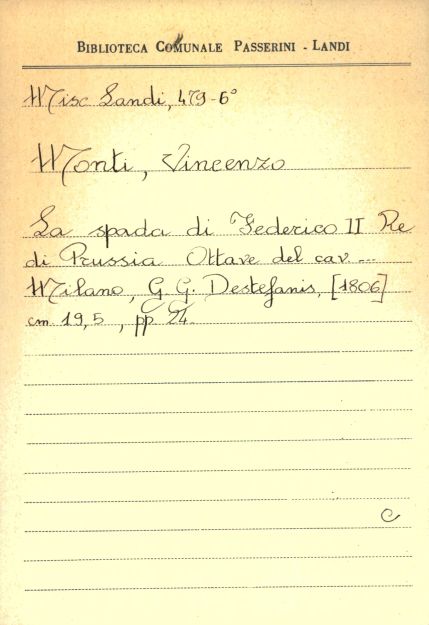 BIBLIOTECA COMUNALE PASSERINI - LANDI
Misc Landi, 479-6°
Monti, Vincenzo
La spada di Federico II Re
di Prussia Ottave del cav...
Milano, G. G. Destefanis, [1806]
cm 19,5, pp 24.
C